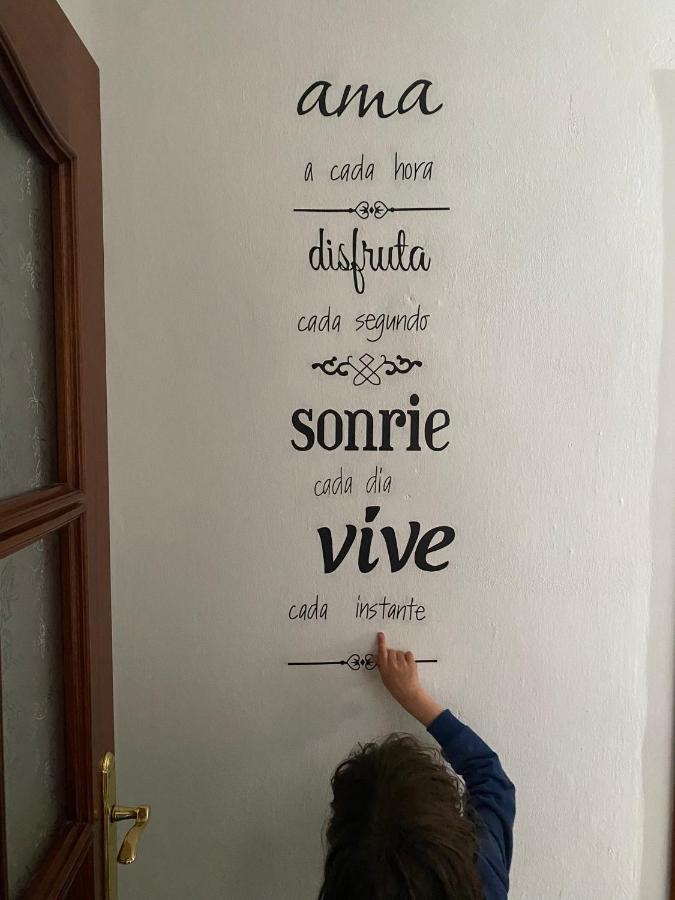 ama
a cada hora
disfruta
cada segundo
sonrie
cada dia
vive
cada instante